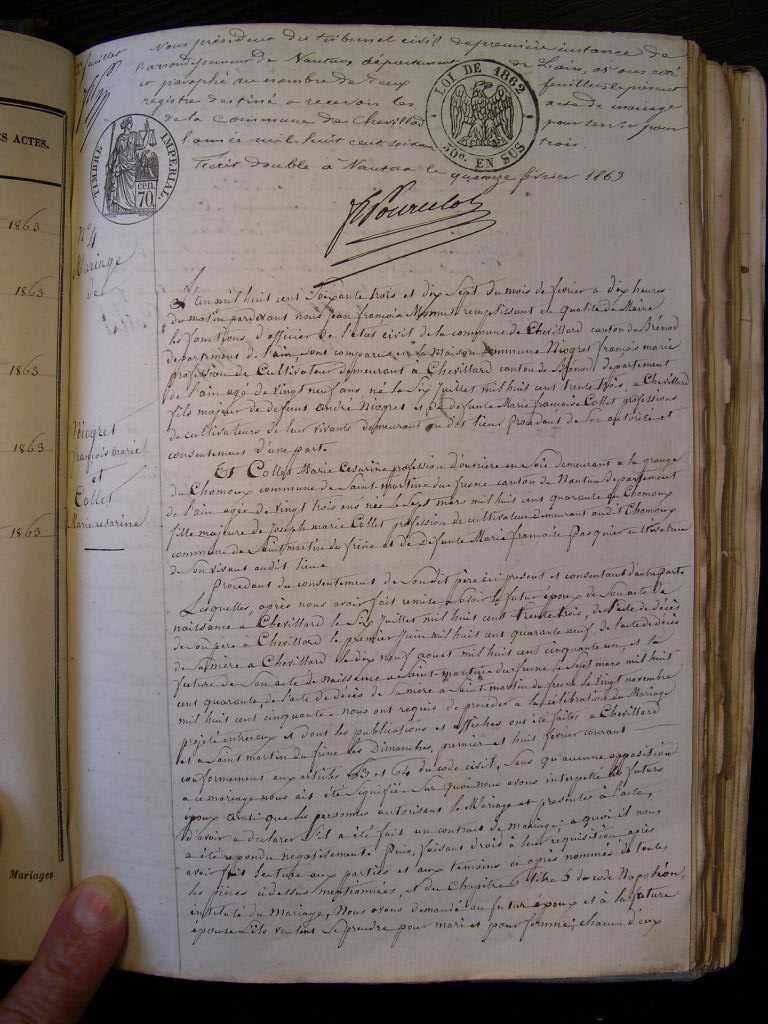 S ACTES.
1863
1863
1863
1863
1863
Mariages
Nous président du tribunal civil de première instance de
l'arrondissement de Nantua département de l'ain, avons coté
et paraphé au nombre de deux feuillets le présent
registre destiné a recevoir les actes de mariage
de la Commune de Chevillard pour servir pour
l'année mil huit cent soixante trois.
Fait double à Nantua le quatorze février 1863
LOI DE 1862
50c. EN SUS
TIMBRE IMPERIAL
cen. 70
N° 4
Mariage
de
Niogret
françois marie
et
Collet
Marie cesarine
L'an mil huit cent Soixante trois et dix Sept du mois de fevrier a dix heures
du matin pardevant nous jean françois remplissant en qualité de Maire
les fonctions d'officier de l'etat civil de la commune de Chevillard canton de Brénod
departement de l'ain sont comparus en la Maison commune Niogret françois marie
profession de Cultivateur demeurant a Chevillard canton de Brénod departement
de l'ain agé de vingt neuf ans né le Six Juillet mil huit cent trente trois, a Chevillard
fils majeur de defunt andré Niogret et de défunte Marie françoise Collet professions
de cultivateurs de leur vivants demeurant au dit lieu procedant de Son autorité et
consentement d'une part.
Et Collet Marie Cesarine profession d'ouvrière en Soie demeurant a la grange
du Chomoux commune de Saint martin du fresne canton de Nantua departement
de l'ain agée de vingt trois ans née le Sept mars mil huit cent quarante au Chomoux
fille majeure de Joseph marie Collet profession de cultivateur demeurant audit Chomoux
commune de Saint martin du frêne et de Défunte Marie françoise Pasquier cultivatrice
de Son vivant audit lieu
Procedant du consentement de Son dit père ici présent et consentant d'autre part.
Lesquelles, après nous avoir fait remise, Savoir le futur époux de Son acte de
naissance a Chevillard le Six Juillet mil huit cent trente trois, de l'acte de décès
de Son père à Chevillard le premier Juin mil huit cent quarante neuf. de l'acte de décès
de Sa mere a Chevillard le dix neuf aout mil huit cent cinquante un, et la
future de Son acte de Naissance a Saint martin du fresne, le Sept mars mil huit
cent quarante, de l'acte de décès de Sa mere a Saint martin du fresne le vingt novembre
mil huit cent cinquante nous ont requis de procéder a la célébration du Mariage
projeté entre eux et dont les publications et affiches ont été faites a Chevillard
et a Saint martin du frêne les Dimanches, premier et huit fevrier courant
conformement aux articles 63 et 64 du code civil, Sans qu'aucune opposition
a ce mariage nous ait été Signifiée Sur quoi nous avons interpellé les futurs
époux ainsi que les personnes autorisant le Mariage et presentes à l'acte,
d'avoir a declarer S'il a été fait un contrat de Mariage; a quoi il nous
a été repondu negativement. Puis, faisant droit à leur réquisition, après
avoir fait lecture aux parties et aux témoins ci après nommés de toutes
les pièces ci dessus mentionnées, et du Chapitre 6 titre 5 du code Napoléon,
intitulé du Mariage, Nous avons demandé au futur époux et à la future
épouse S'ils veulent Se prendre pour mari et pour femme; chacun d'eux